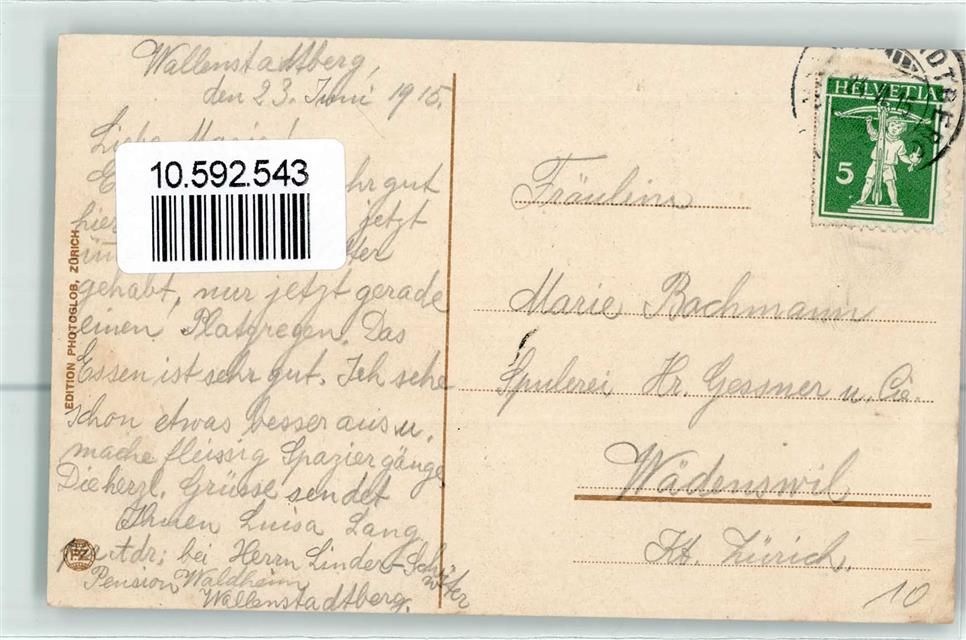 Wallenstadtberg,
den 23. Juni 1915.
Liebe Marie!
hr gut
hier jetzt
gehabt, nur jetzt gerade
einen Platzregen. Das
Essen ist sehr gut. Ich sehe
schon etwas besser aus u.
mache fleissig Spaziergänge
Die herzl. Grüsse sendet
Ihnen Luisa Lang
Adr; bei Herrn Linder-
Pension Waldheim
Wallenstadtberg.
10.592.543
EDITION PHOTOGLOB, ZÜRICH
PZ
HELVETIA
5
Fräulein
Marie Bachmann
Spulerei Hr. Gessner u. Cie.
Wädenswil
Kt. Zürich.
10